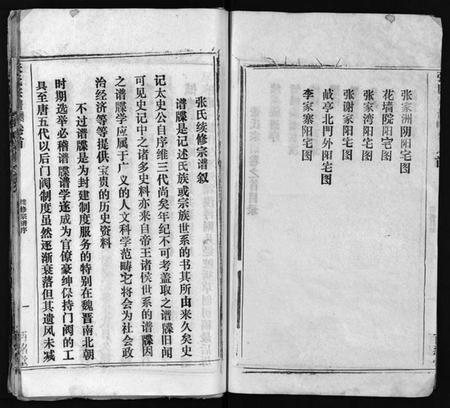 张家洲阴阳宅图
花墙院阳宅图
张家湾阳宅图
张谢家阳宅图
岐亭北門外阳宅图
李家寨阳宅图
张氏续修宗谱叙
谱牒是记述氏族或宗族世系的书其所由来久矣史
记太史公自序维三代尚矣年纪不可考盖取之谱牒旧闻
可见史记中之诸多史料亦来自帝王诸侯世系的谱牒因
之谱牒学应属于广义的人文科学范畴它将会为社会政
治经济等等提供宝贵的历史资料
不过谱牒是为封建制度服务的特别在魏晋南北朝
时期选举必稽谱牒谱学遂成为官僚豪绅保持门阀的工
具至唐五代以后门阀制度虽然逐渐衰落但其遗风未减
续修宗谱序
一